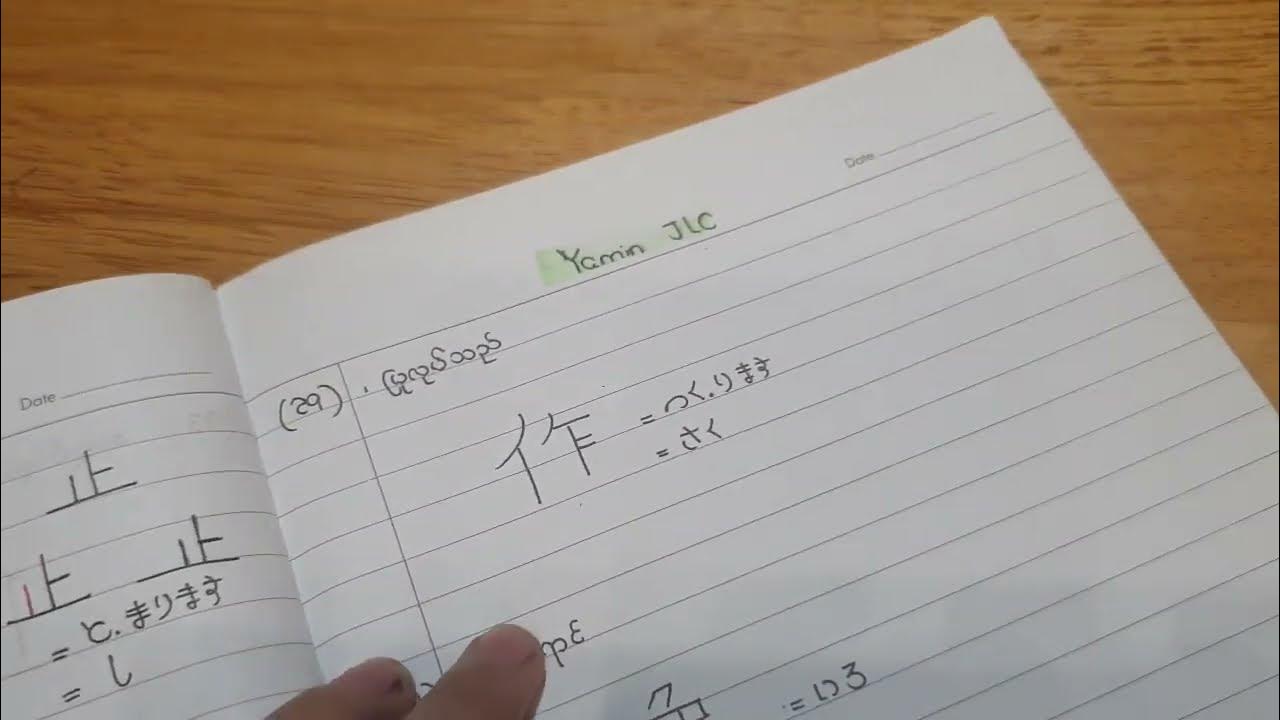 Date
止
止 止
= と.まります
= し
Date
Yamin JLC
(၃၅) . ပြုလုပ်သည်
作 = つく.ります
= さく
= いろ